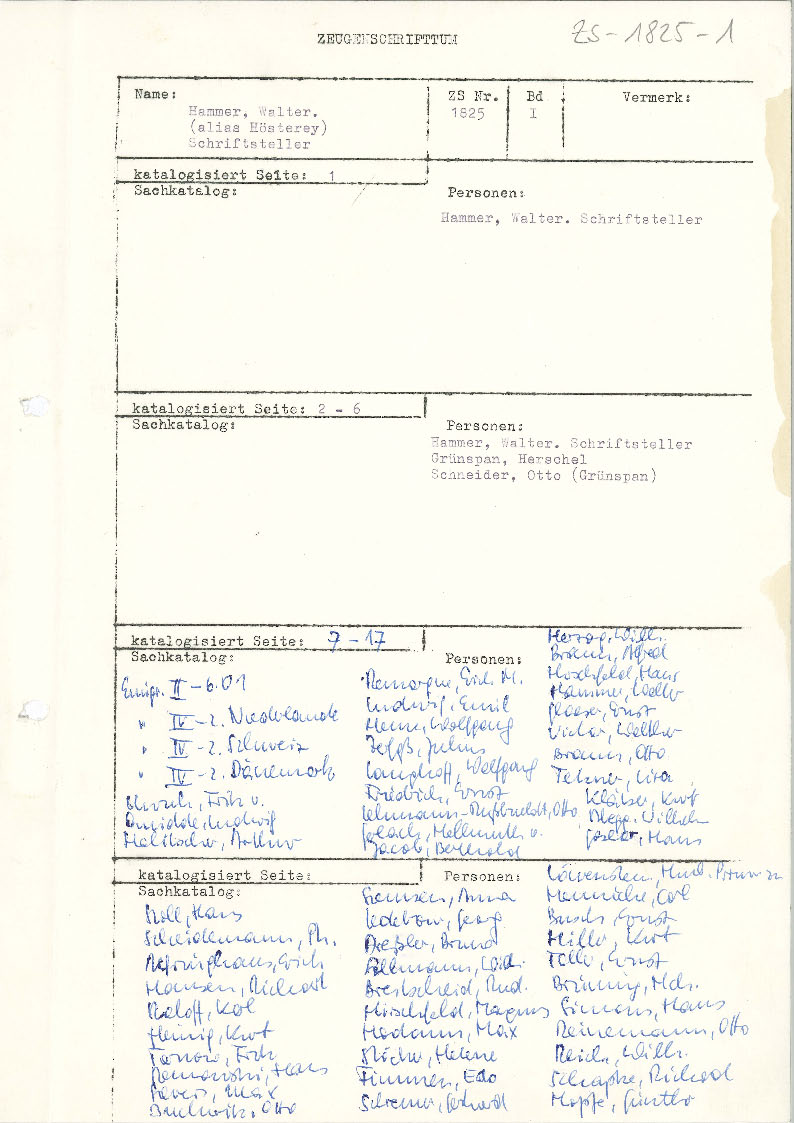 ZS-1825-1
ZEUGENSCHRIFTTUM
Name:
Hammer, Walter.
(alias Hösterey)
Schriftsteller
ZS Nr.
1825
Bd
I
Vermerk:
katalogisiert Seite: 1
Sachkatalog:
Personen:
Hammer, Walter. Schriftsteller
katalogisiert Seite: 2 - 6
Sachkatalog:
Personen:
Hammer, Walter. Schriftsteller
Grünspan, Herschel
Schneider, Otto (Grünspan)
katalogisiert Seite: 7 - 17
Sachkatalog:
Emigr. II - 6.01
" IV - 2. Niederlande
" IV - 2. Schweiz
" IV - 2. Dänemark
Unruh, Fritz v.
Quidde, Ludwig
Holitscher, Arthur
Personen:
Remarque, Erich M.
Ludwig, Emil
Heine, Wolfgang
Julius
Langhoff, Wolfgang
Friedrich, Ernst
Lehmann-Rußbueldt, Otto
Gerlach, Hellmuth v.
Jacob, Berthold
Herzog, Wilh.
Braun, Alfred
Hirschfeld, Hans
Hammer, Walter
Glaeser, Ernst
Victor, Walther
Braun, Otto
Tetzner, Lisa
Kläber, Kurt
Wilhelm
Goslar, Hans
katalogisiert Seite:
Sachkatalog:
Noll, Hans
Scheidemann, Ph.
Erich
Hansen, Richard
Raloff, Karl
Heinig, Kurt
Tarnow, Fritz
Hans
Sievers, Max
Buchwitz, Otto
Personen:
Siemsen, Anna
Ledebour, Georg
Dreßler, Bruno
Sollmann, Wilh.
Breitscheid, Rud.
Hirschfeld, Magnus
Hodann, Max
Stöcker, Helene
Fimmen, Edo
Gerhard
Löwenstein, Hub. Prinz zu
Carl
Busch, Ernst
Hiller, Kurt
Toller, Ernst
Brüning, Hch.
Simons, Hans
Reinemann, Otto
Reich, Wilh.
Schapke, Richard
Günther